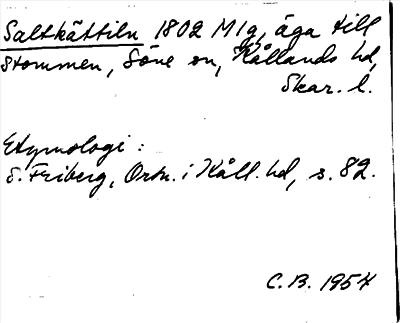 Saltkättiln 1802 Mlg, äga till
Stommen, Söne sn, Kållands hd,
Skar. l.
Etymologi:
S. Friberg, Ortn. i Kåll. hd, s. 82.
C.B. 1954